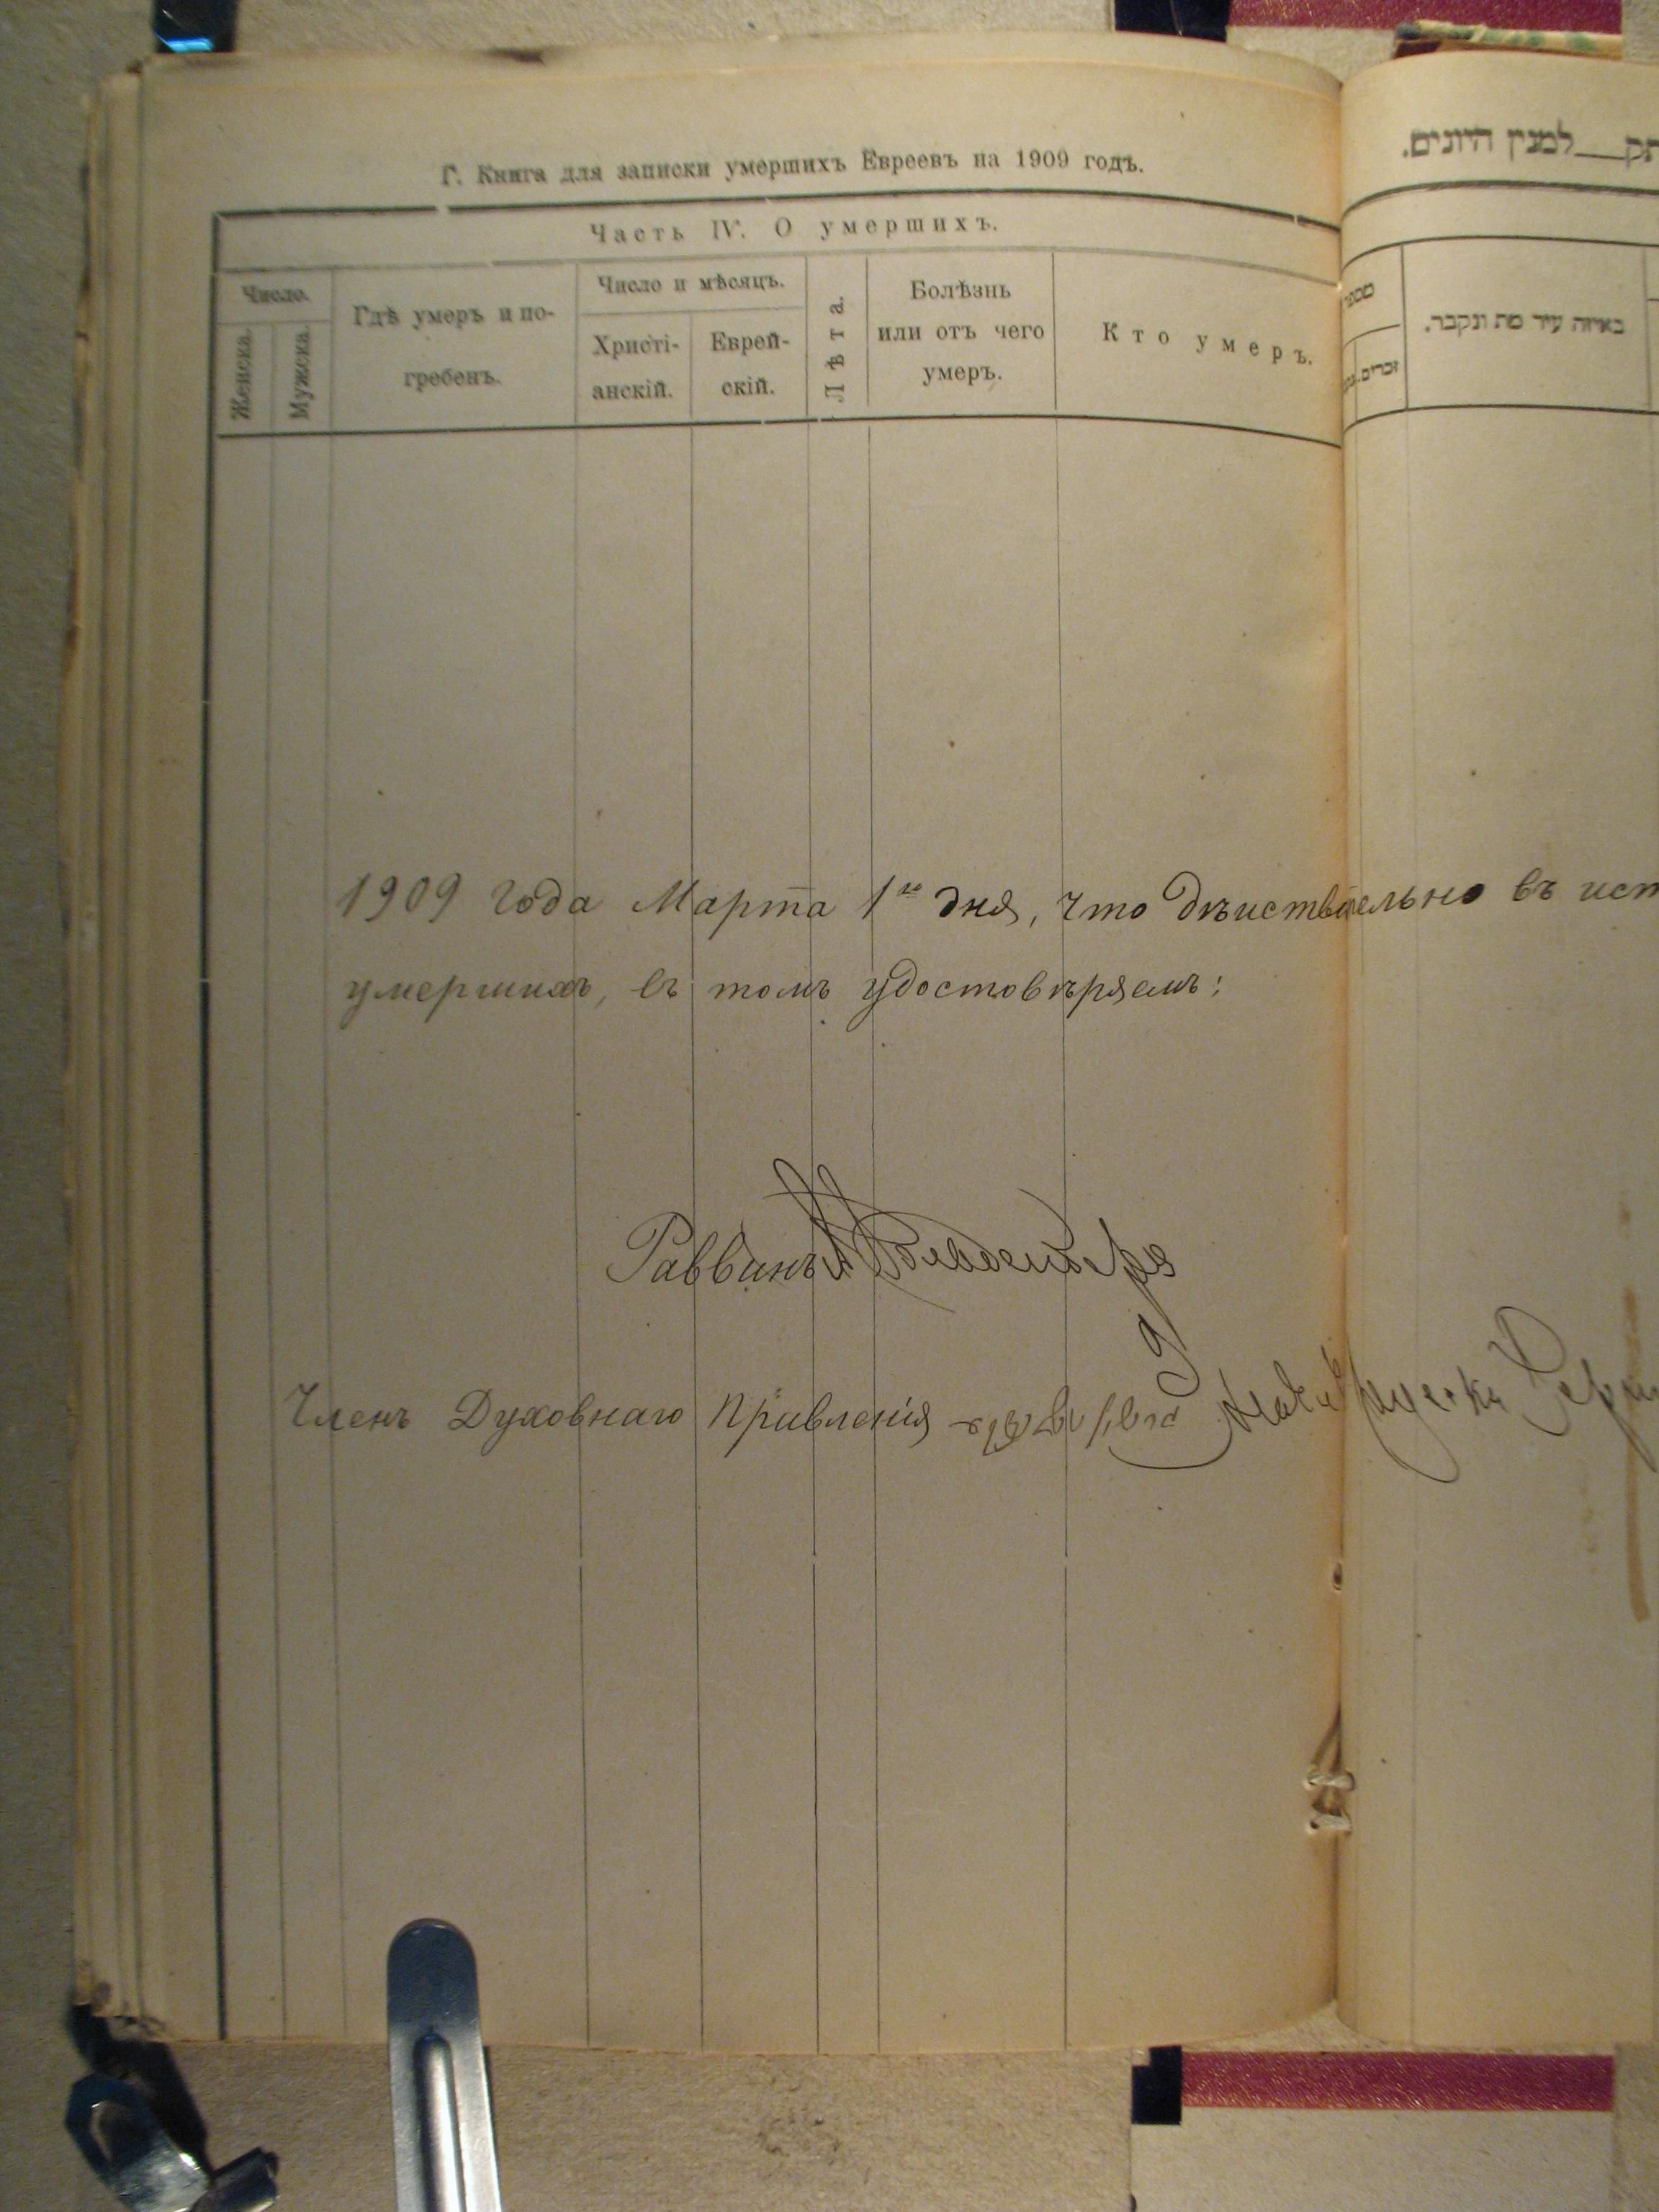 Г. Книга для записки умершихъ Евреевъ на 1909 годъ.
Часть IV. О умершихъ.
Число.
Женска.
Мужска.
Гдѣ умеръ и по-
гребенъ.
Число и мѣсяцъ.
Христі-
анскій.
Еврей-
скій.
Лѣта.
Болѣзнь
или отъ чего
умеръ.
Кто умеръ.
1909 года Марта 1го дня, что дѣиствительно въ ист
умершихъ, въ томъ удостовѣряемъ:
Раввинъ
Членъ Духовнаго Правленія
למנין היונים.
מספר
זכרים.
באיזה עיר מת ונקבר.